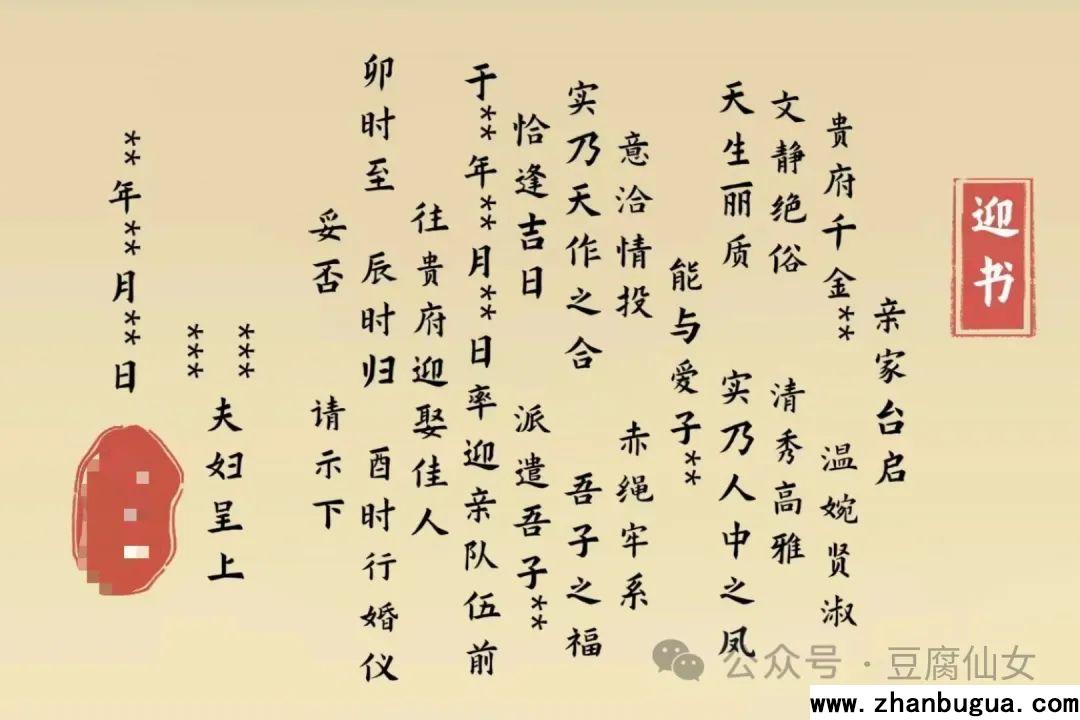 迎书
亲家台启
贵府千金** 温婉贤淑
文静绝俗 清秀高雅
天生丽质 实乃人中之凤
能与爱子**
意洽情投 赤绳牢系
实乃天作之合 吾子之福
恰逢吉日 派遣吾子**
于**年**月**日率迎亲队伍前
往贵府迎娶佳人
卯时至 辰时归 酉时行婚仪
妥否 请示下
***
*** 夫妇呈上
**年**月**日
公众号·豆腐仙女
www.zhanbugua.com